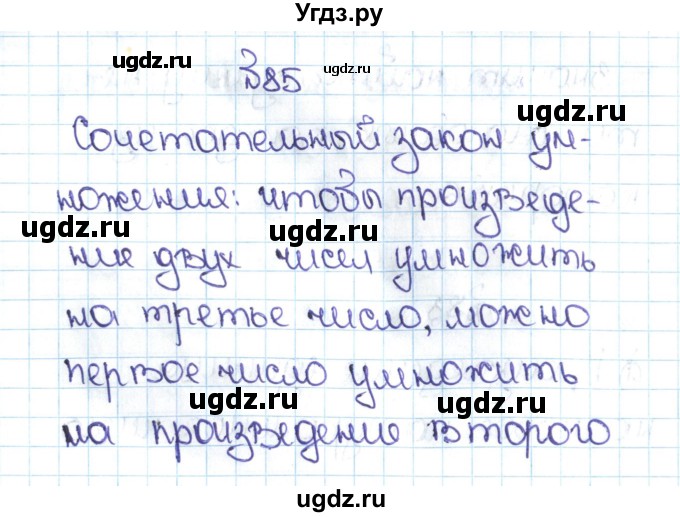 Угдз.ру
ugdz.ru ugdz.ru
В85 ugdz.ru
ugdz.ru
Сочетательный закон ум-
ножения: чтобы произведе-
ugdz.ru ugdz.ru
ние двух чисел умножить
на третье число, можно
первое число умножить
ugdz.ru ugdz.ru
на произведение второго
ugdz.ru